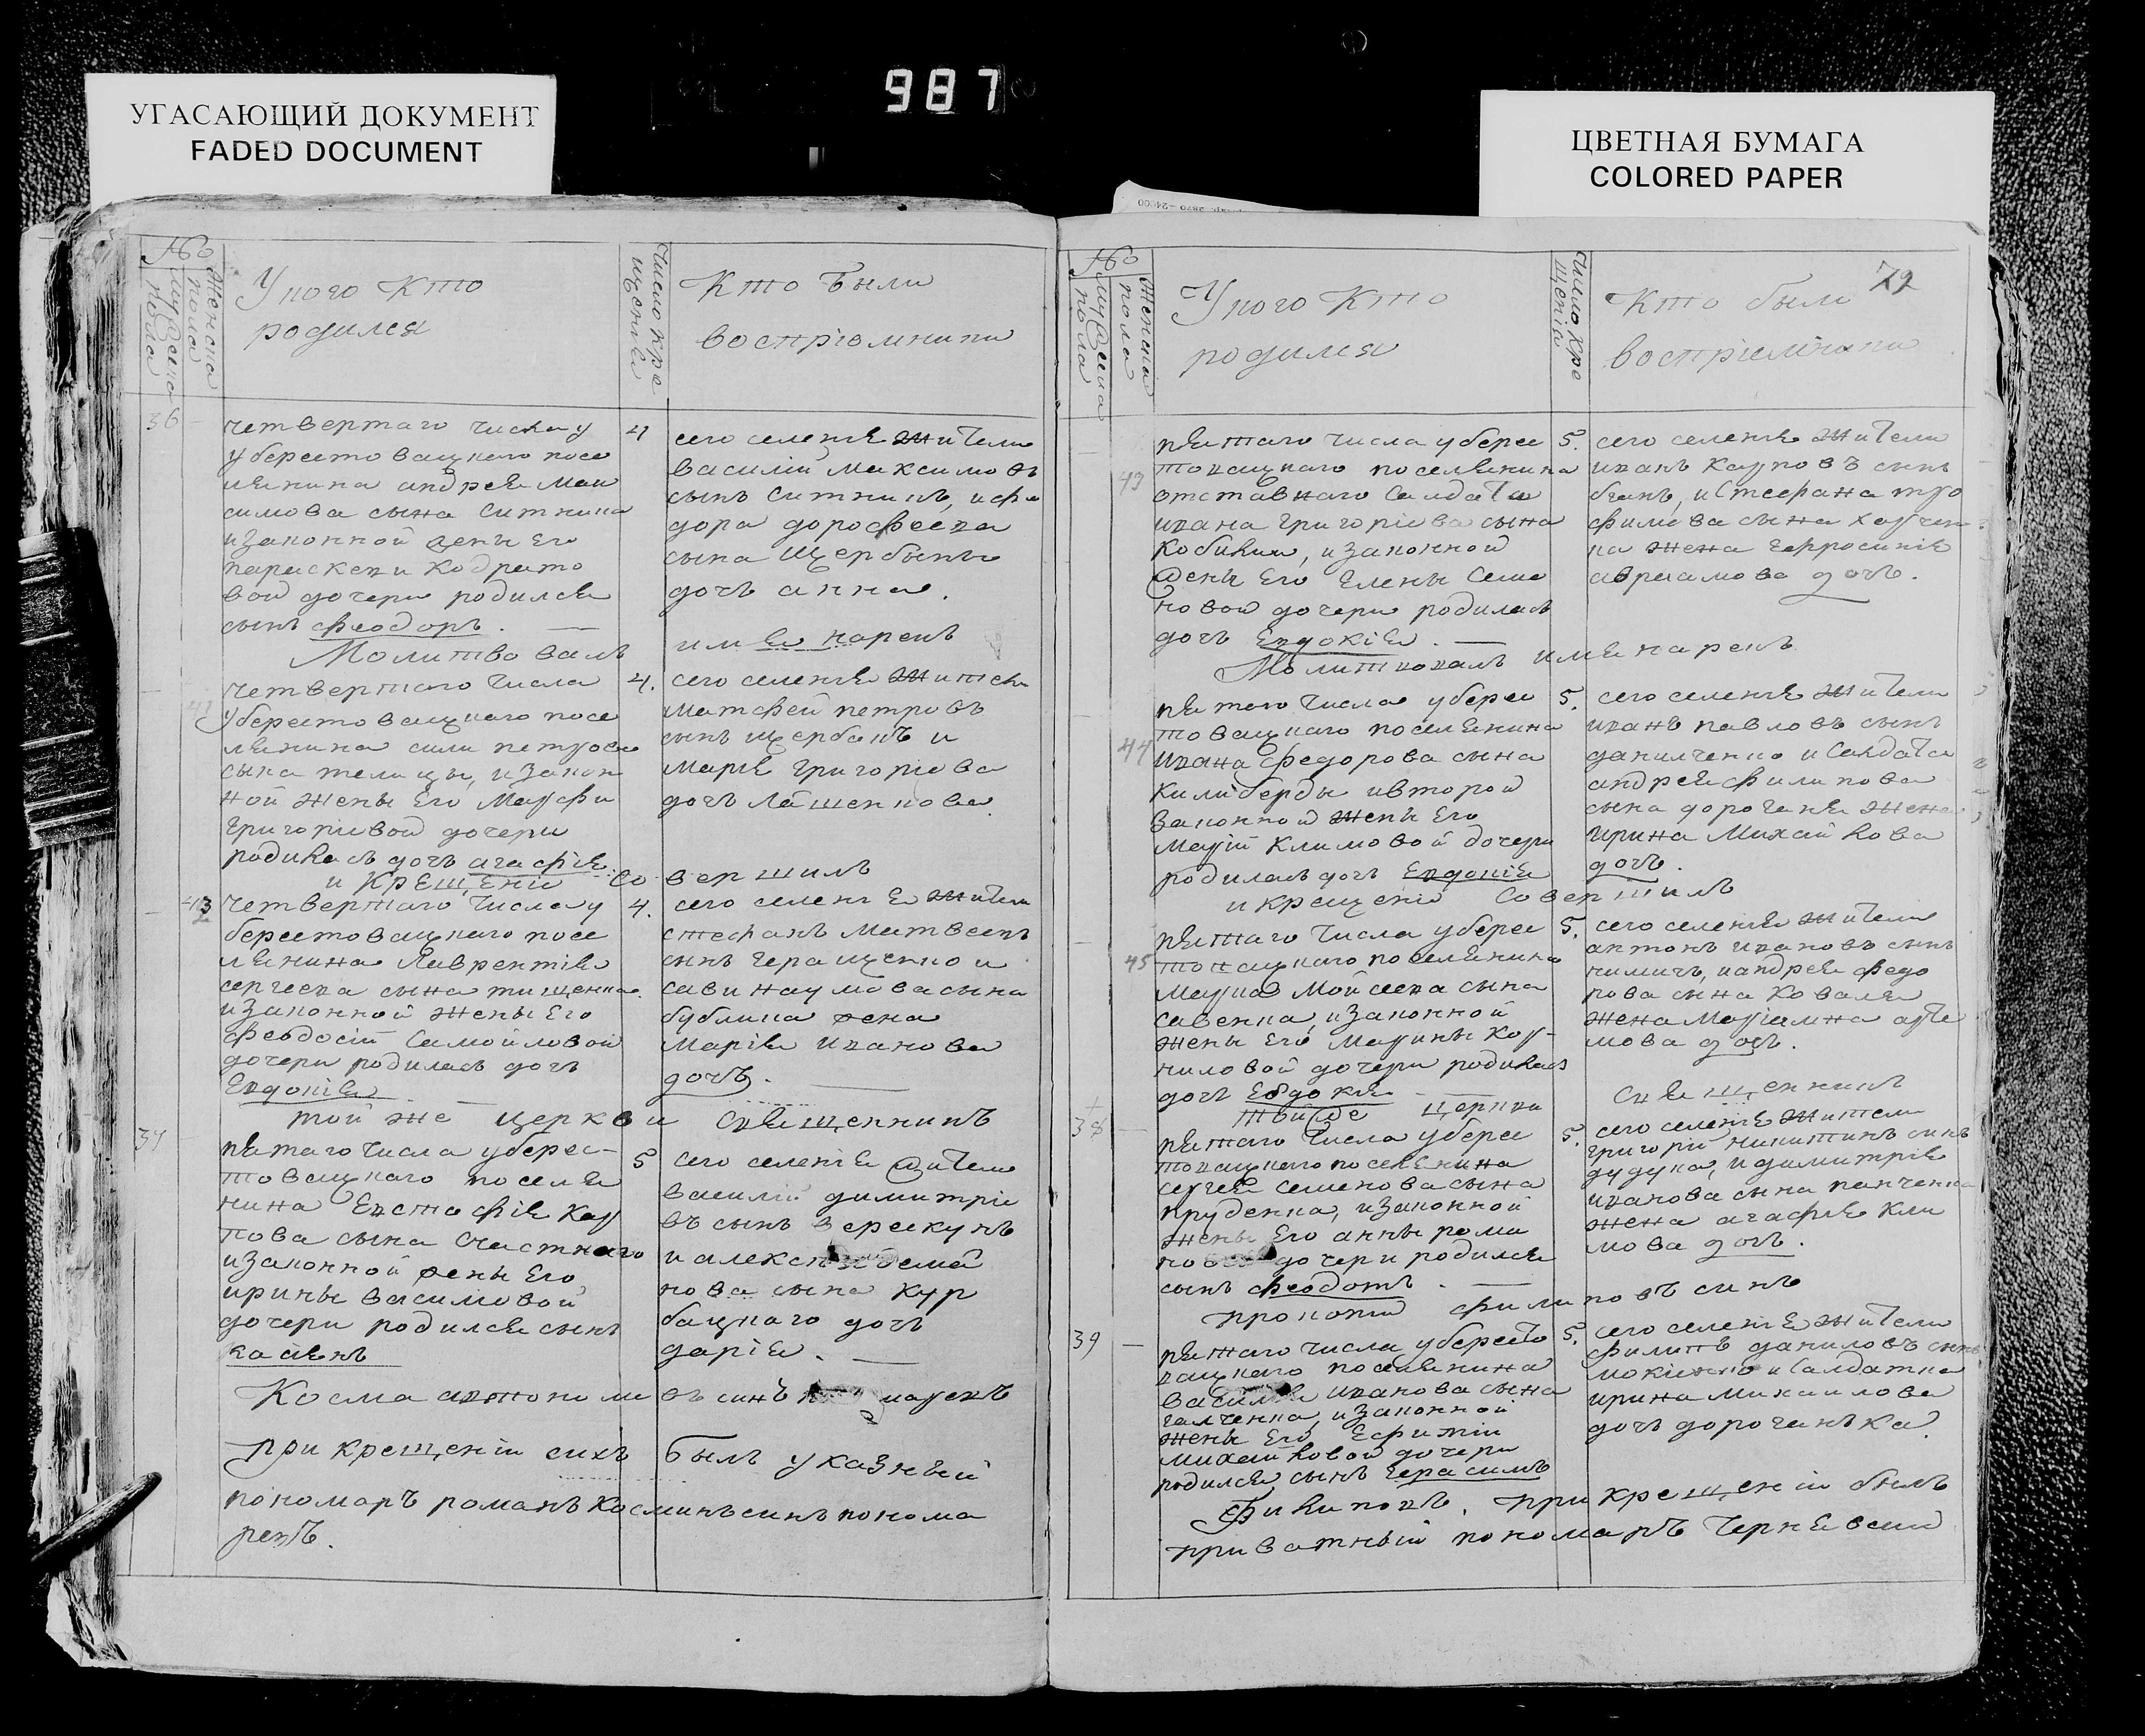 987
УГАСАЮЩИЙ ДОКУМЕНТ
FADED DOCUMENT
ЦВЕТНАЯ БУМАГА
COLORED PAPER
№
Мужеска пола
Женска пола
У кого кто
родился
Число кре
щенія
Кто были
воспріемники
36
четвертаго числа у
у берестовацкаго посе
лянина андрея мак
симова сына ситника
изаконной жены его
параскеви кодрато
вой дочери родился
сынъ феодоръ.
4
сего селенія жители
василій максимовъ
сынъ ситникъ, ифе
дора дорофеева
сына щербыны
дочь анна.
Молитвовалъ имя нарекъ
41
четвертаго числа
у берестовацкаго посе
лянина сили петрова
сына телицы, изакон
ной жены его марфи
григоріевой дочери
родилась дочь агафія
4.
сего селенія жители
матфей петровъ
сынъ щербакъ и
марія григоріева
дочь лашенкова
и крещеніе совершилъ
42
четвертаго числа у
берестовацкаго посе
лянина лаврентія
сергеева сына тищенка
изаконной жены его
феодосіи самойловой
дочери родилась дочь
Евдокія
4.
сего селенія жители
стефанъ матвеевъ
сынъ геращенко и
сави наумова сына
бублика жена
марія иванова
дочь.
той же церкви священникъ
37
пятаго числа у берес-
товацкаго поселя
нина Евстафія кар
пова сына счастнаго
изаконной жены его
ирины василовой
дочери родился сынъ
касіянъ
5
сего селенія жители
василій димитріе
въ сынъ верескунъ
и
нова сына кур
бацкаго дочь
дарія.
Косма автономовъ синъ
При крещеніи сихъ былъ указный
пономарь романъ косминъ синъ понома
ревъ.
72
№
Мужеска пола
Женска пола
У кого кто
родился
Число кре
щенія
Кто были
воспріемники
43
пятаго числа у берес
товацкаго поселянина
отставнаго салдата
ивана григоріева сына
кобилки, изаконной
жены его Елены семе
новой дочери родилась
дочь Евдокія.
5.
сего селенія жители
иванъ карповъ сынъ
бганъ, и стефана тро
фимова сына харчен
ка жена евфросинія
авраамова дочь.
Молитвовалъ имя нарекъ
44
пятаго числа у берес
товацкаго поселянина
ивана федорова сына
килиберды и второй
законной жены его
маріи климовой дочери
родилась дочь Евдокія
5.
сего селенія жители
иванъ павловъ сынъ
данилченко и салдата
андрея филипова
сына дороганя жена
ирина михайлова
дочь.
и крещеніе совершилъ
45
пятаго числа у берес
товацкаго поселянина
марка мойсеева сына
савенка, изаконной
жены его марины кор-
ниловой дочери родилась
дочь Евдокія
5.
сего селенія жители
антонъ ивановъ сынъ
кимичъ, иандрея федо
рова сына коваля
жена маріамна арте
мова дочь.
той же церкви священникъ
38
пятаго числа у берес
товацкаго поселянина
сергея семенова сына
пруденка, изаконной
жены его анны рома
новой дочери родился
сынъ феодотъ.
5.
сего селенія жители
григорій никитинъ синъ
дудука, идимитрія
иванова сына панченка
жена агафія кли
мова дочь.
прокопій филиповъ синъ
39
пятаго числа у бересто
вацкаго поселянина
василія иванова сына
галченка, изаконной
жены его Ефиміи
михайловой дочери
родился сынъ герасимъ
5.
сего селенія жители
филипъ даниловъ сынъ
мокіенко и салдатка
ирина михаилова
дочь дороганька.
Филиповъ. при крещеніи былъ
приватный пономаръ Чернявскій